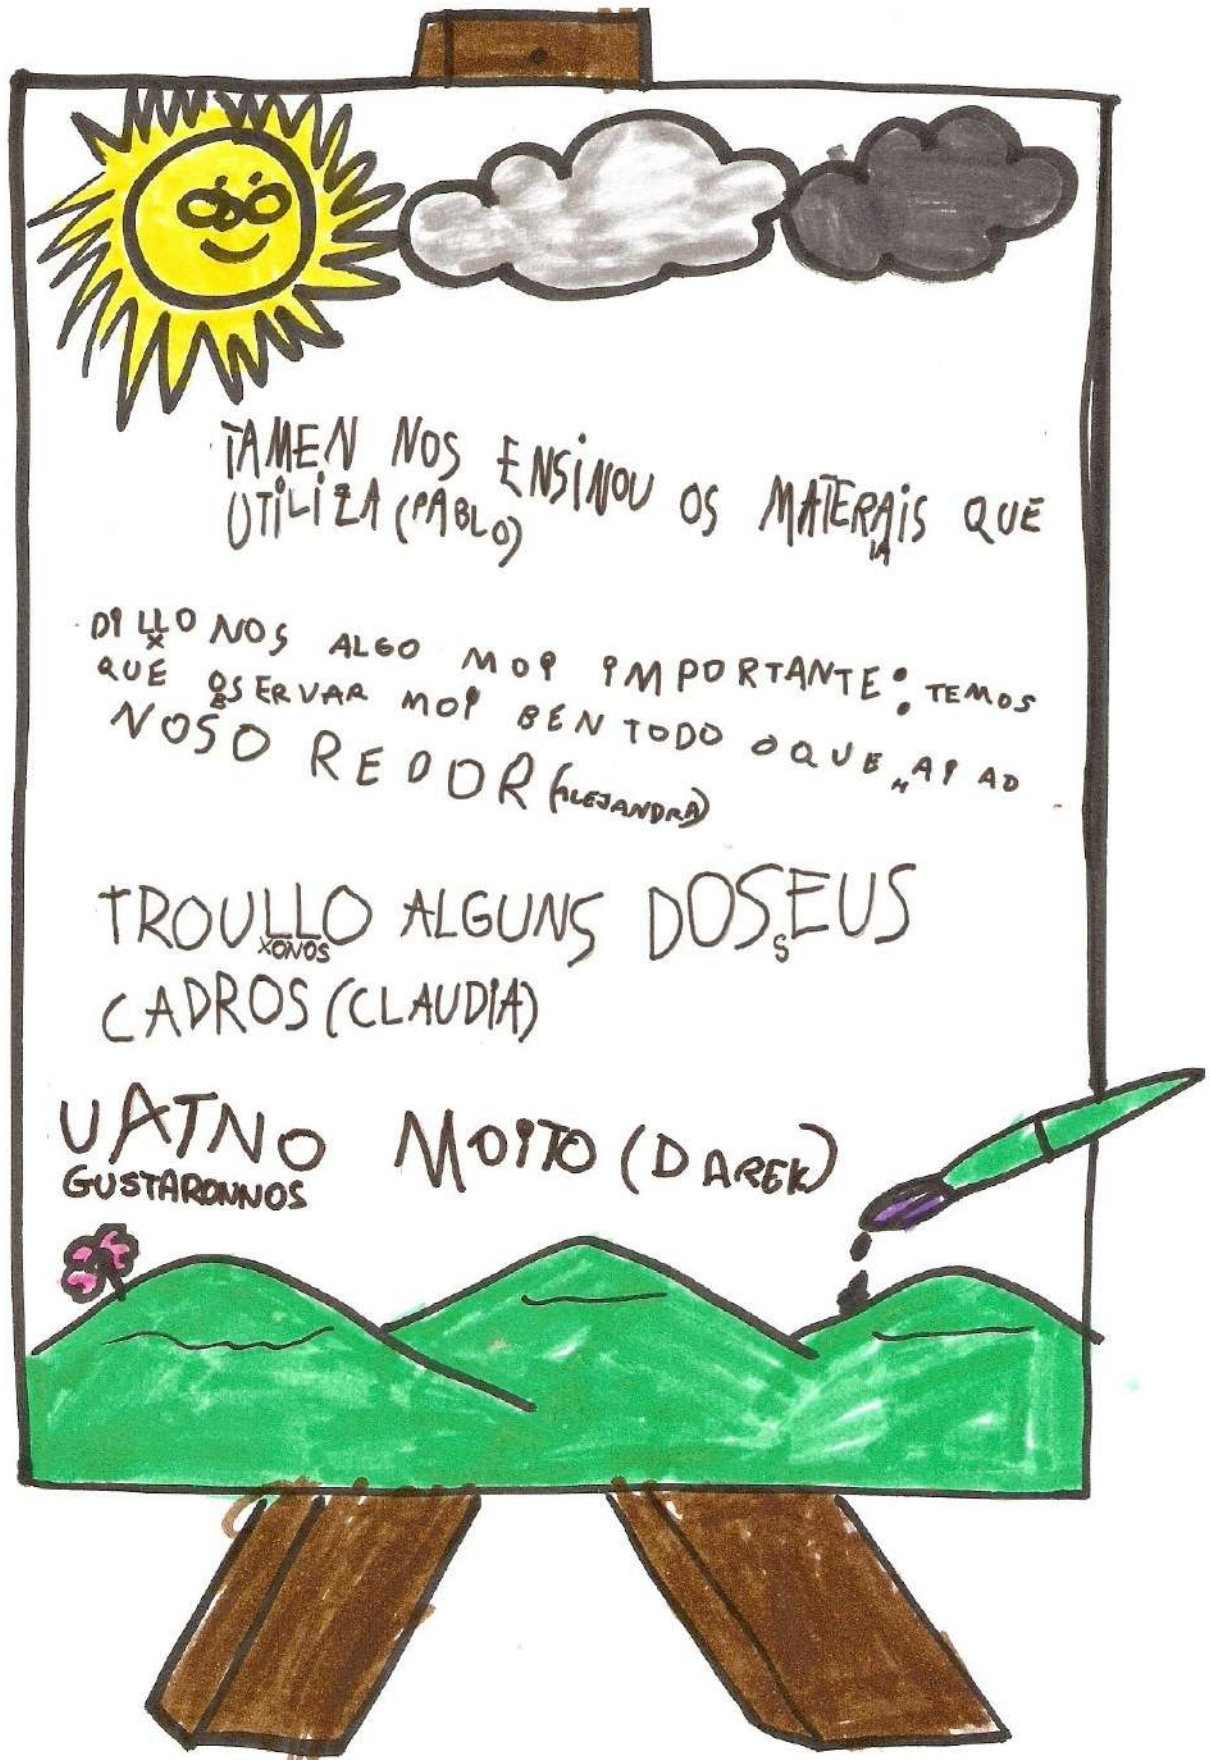 TAMEN NOS ENSINOU OS MATERAIS QUE
IA
UTILIZA (PABLO)
DILLONOS ALGO MOI IMPORTANTE: TEMOS
X
QUE OSERVAR MOI BEN TODO O QUE AI AO
B
H
NOSO REDOR (ALEJANDRA)
TROULLO ALGUNS DOSEUS
XONOS
S
CADROS (CLAUDIA)
UATNO MOITO (DAREK)
GUSTARONNOS